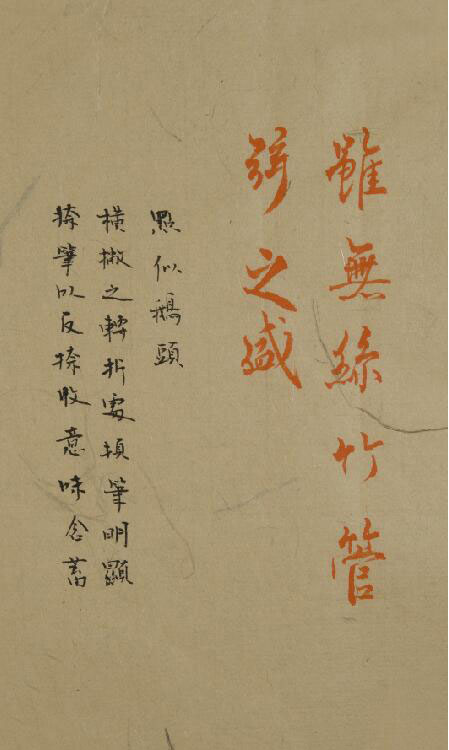 雖無絲竹管
弦之盛
點似鵝頭
橫撇之轉折處頓筆明顯
捺筆以反捺收意味含蓄